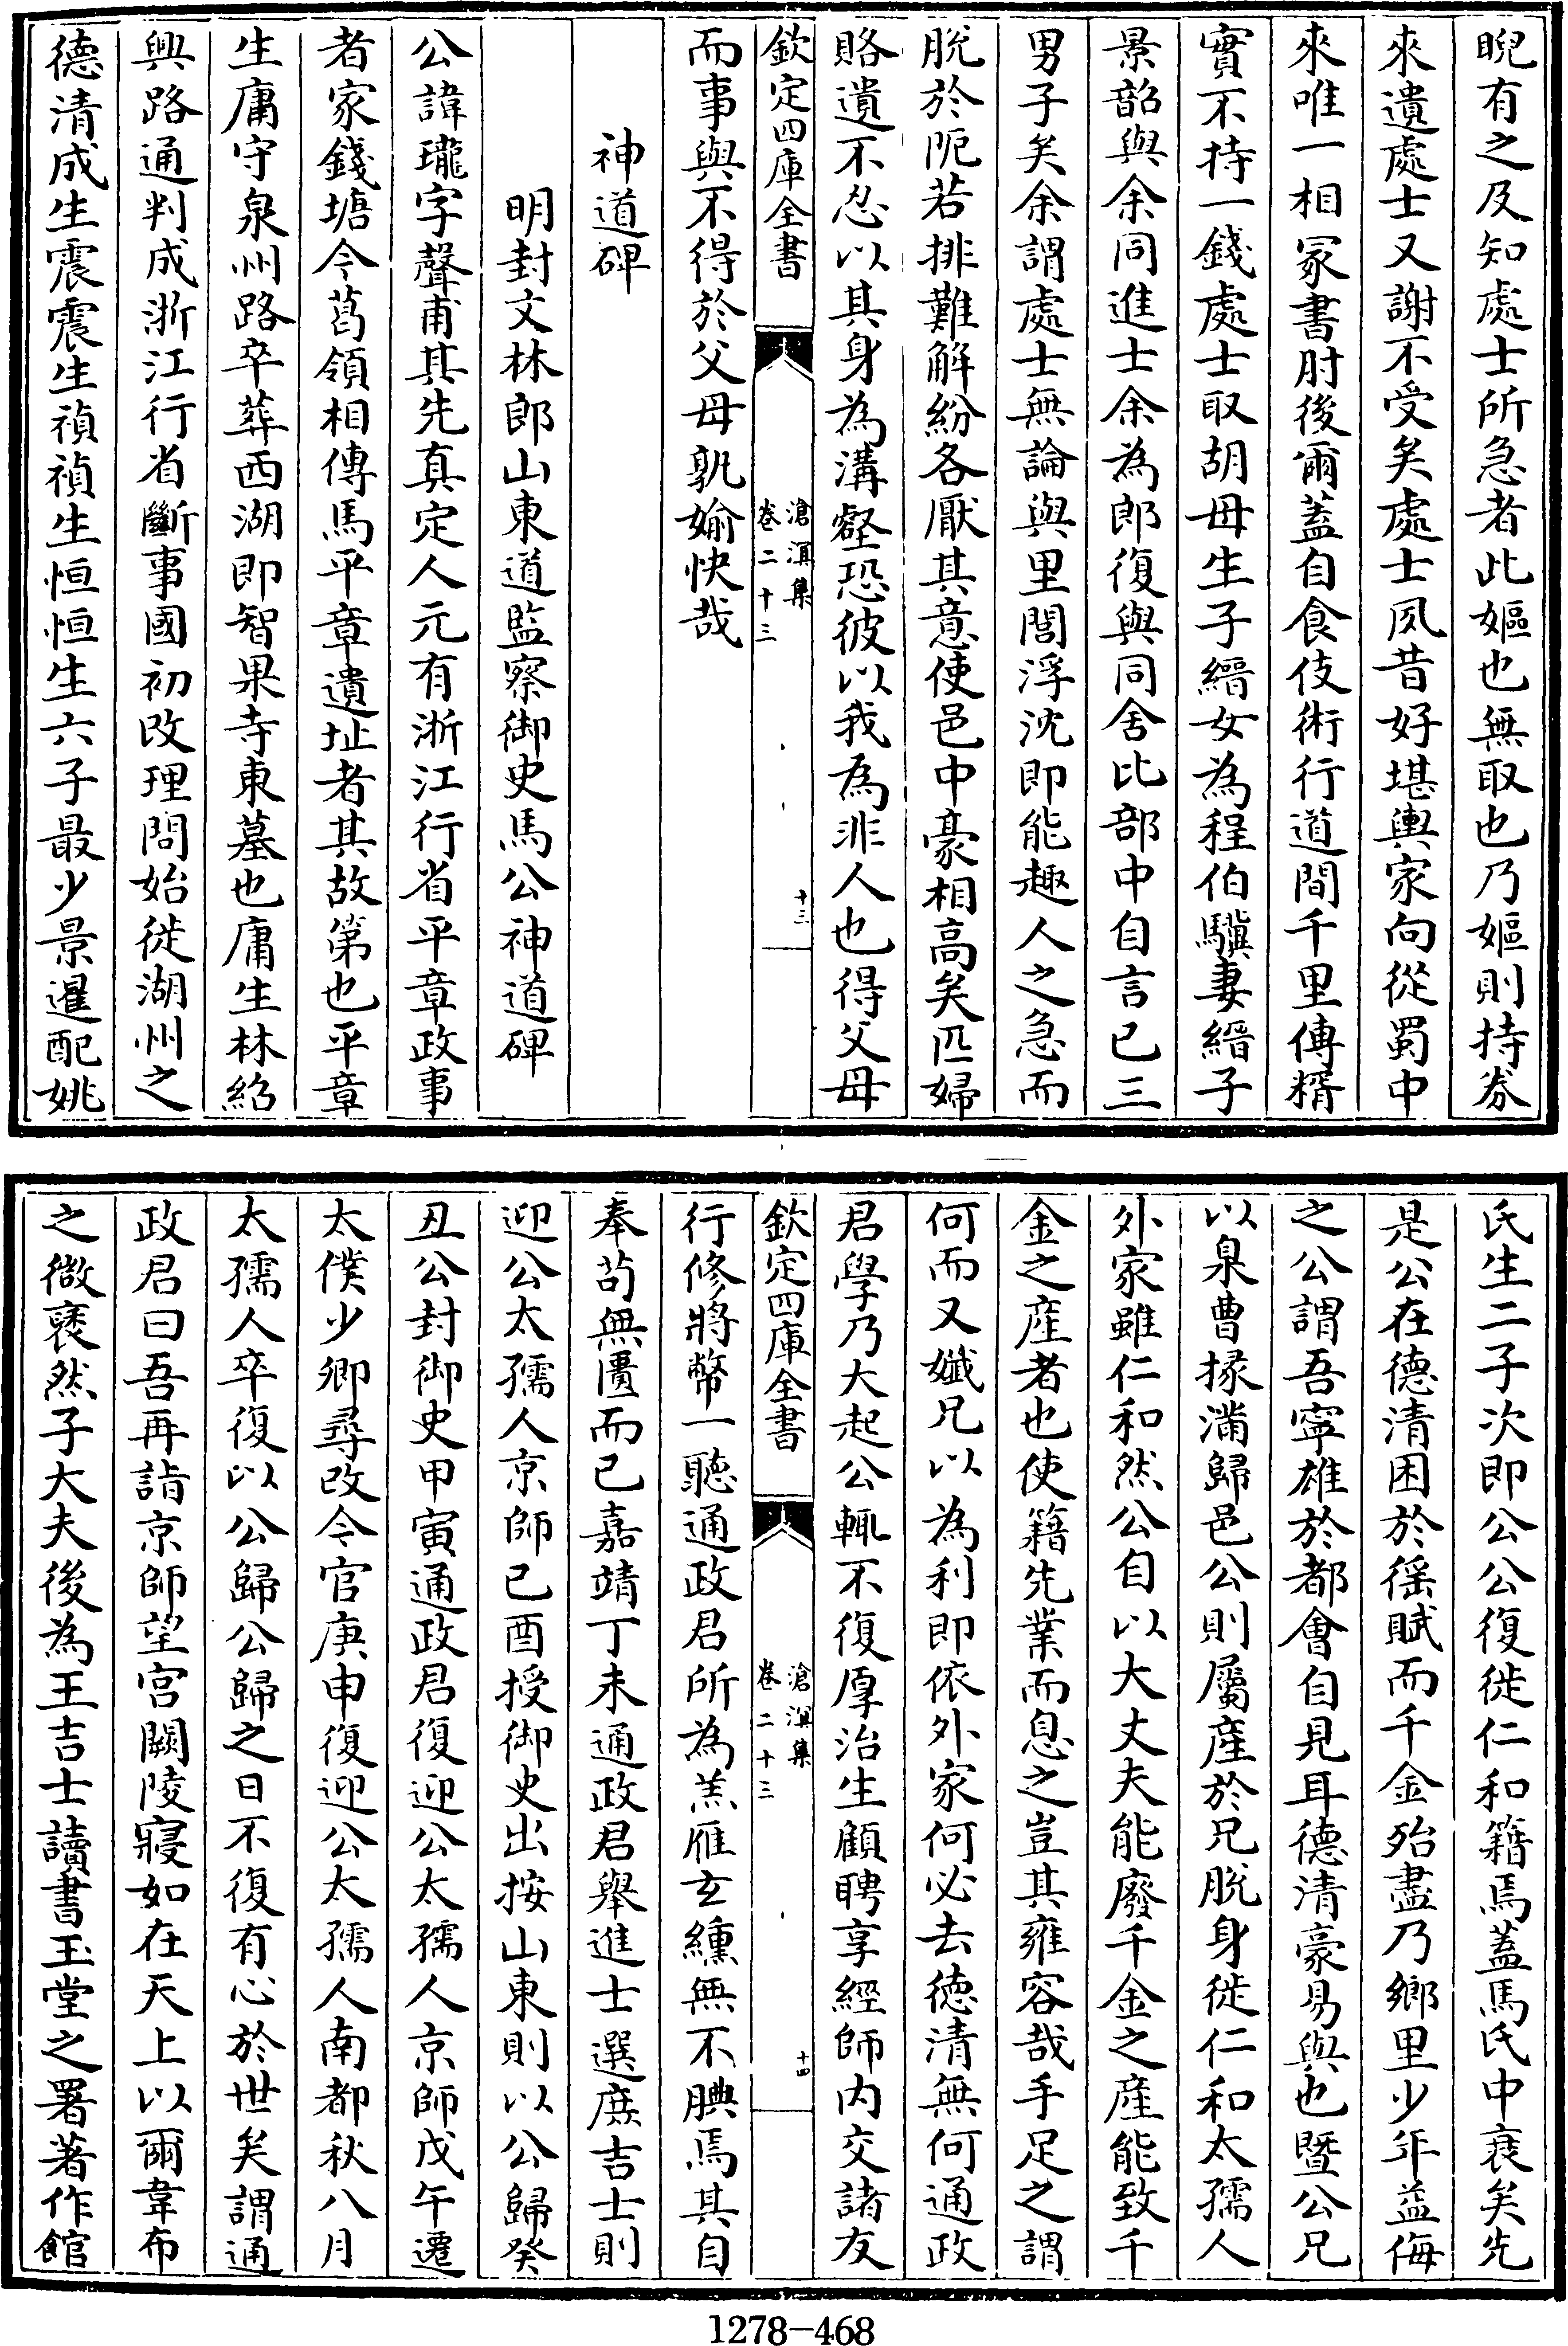 睨有之及知處士所急者此嫗也無取也乃嫗則持劵
來遺處士又謝不受矣處士夙昔好堪輿家向從蜀中
來唯一相冢書肘後爾蓋自食伎術行道間千里傳糈
實不持一錢處士取胡母生子縉女為程伯驥妻縉子
景韶與余同進士余為郎復與同舍比部中自言已三
男子矣余謂處士無論與里閭浮沈即能趣人之急而
脫於阨若排難解紛各厭其意使邑中豪相高矣匹婦
賂遺不忍以其身為溝壑恐彼以我為非人也得父母
欽定四庫全書
滄溟集
卷二十三
十三
而事與不得於父母孰媮快哉
神道碑
明封文林郎山東道監察御史馬公神道碑
公諱瓏字聲甫其先真定人元有浙江行省平章政事
者家錢塘今葛領相傳馬平章遺址者其故第也平章
生庸守泉州路卒葬西湖即智果寺東墓也庸生林紹
興路通判成浙江行省斷事國初改理問始徙湖州之
德清成生震震生禎禎生恒恒生六子最少景暹配姚
氏生二子次即公公復徙仁和籍焉蓋馬氏中衰矣先
是公在德清困於徭賦而千金殆盡乃鄉里少年益侮
之公謂吾寧雄於都會自見耳德清豪易與也暨公兄
以泉曹掾滿歸邑公則屬產於兄脫身徙仁和太孺人
外家雖仁和然公自以大丈夫能廢千金之產能致千
金之產者也使籍先業而息之豈其雍容哉手足之謂
何而又孅兄以為利即依外家何必去德清無何通政
君學乃大起公輒不復厚治生顧聘享經師內交諸友
欽定四庫全書
滄溟集
卷二十三
十四
行修將幣一聽通政君所為羔雁玄纁無不腆焉其自
奉苟無匱而已嘉靖丁未通政君舉進士選庶吉士則
迎公太孺人京師已酉授御史出按山東則以公歸癸
丑公封御史甲寅通政君復迎公太孺人京師戊午遷
太僕少卿尋改令官庚申復迎公太孺人南都秋八月
太孺人卒復以公歸公歸之日不復有心於世矣謂通
政君曰吾再詣京師望宮闕陵寢如在天上以爾韋布
之微褎然子大夫後為王吉士讀書玉堂之署著作館
1278-468